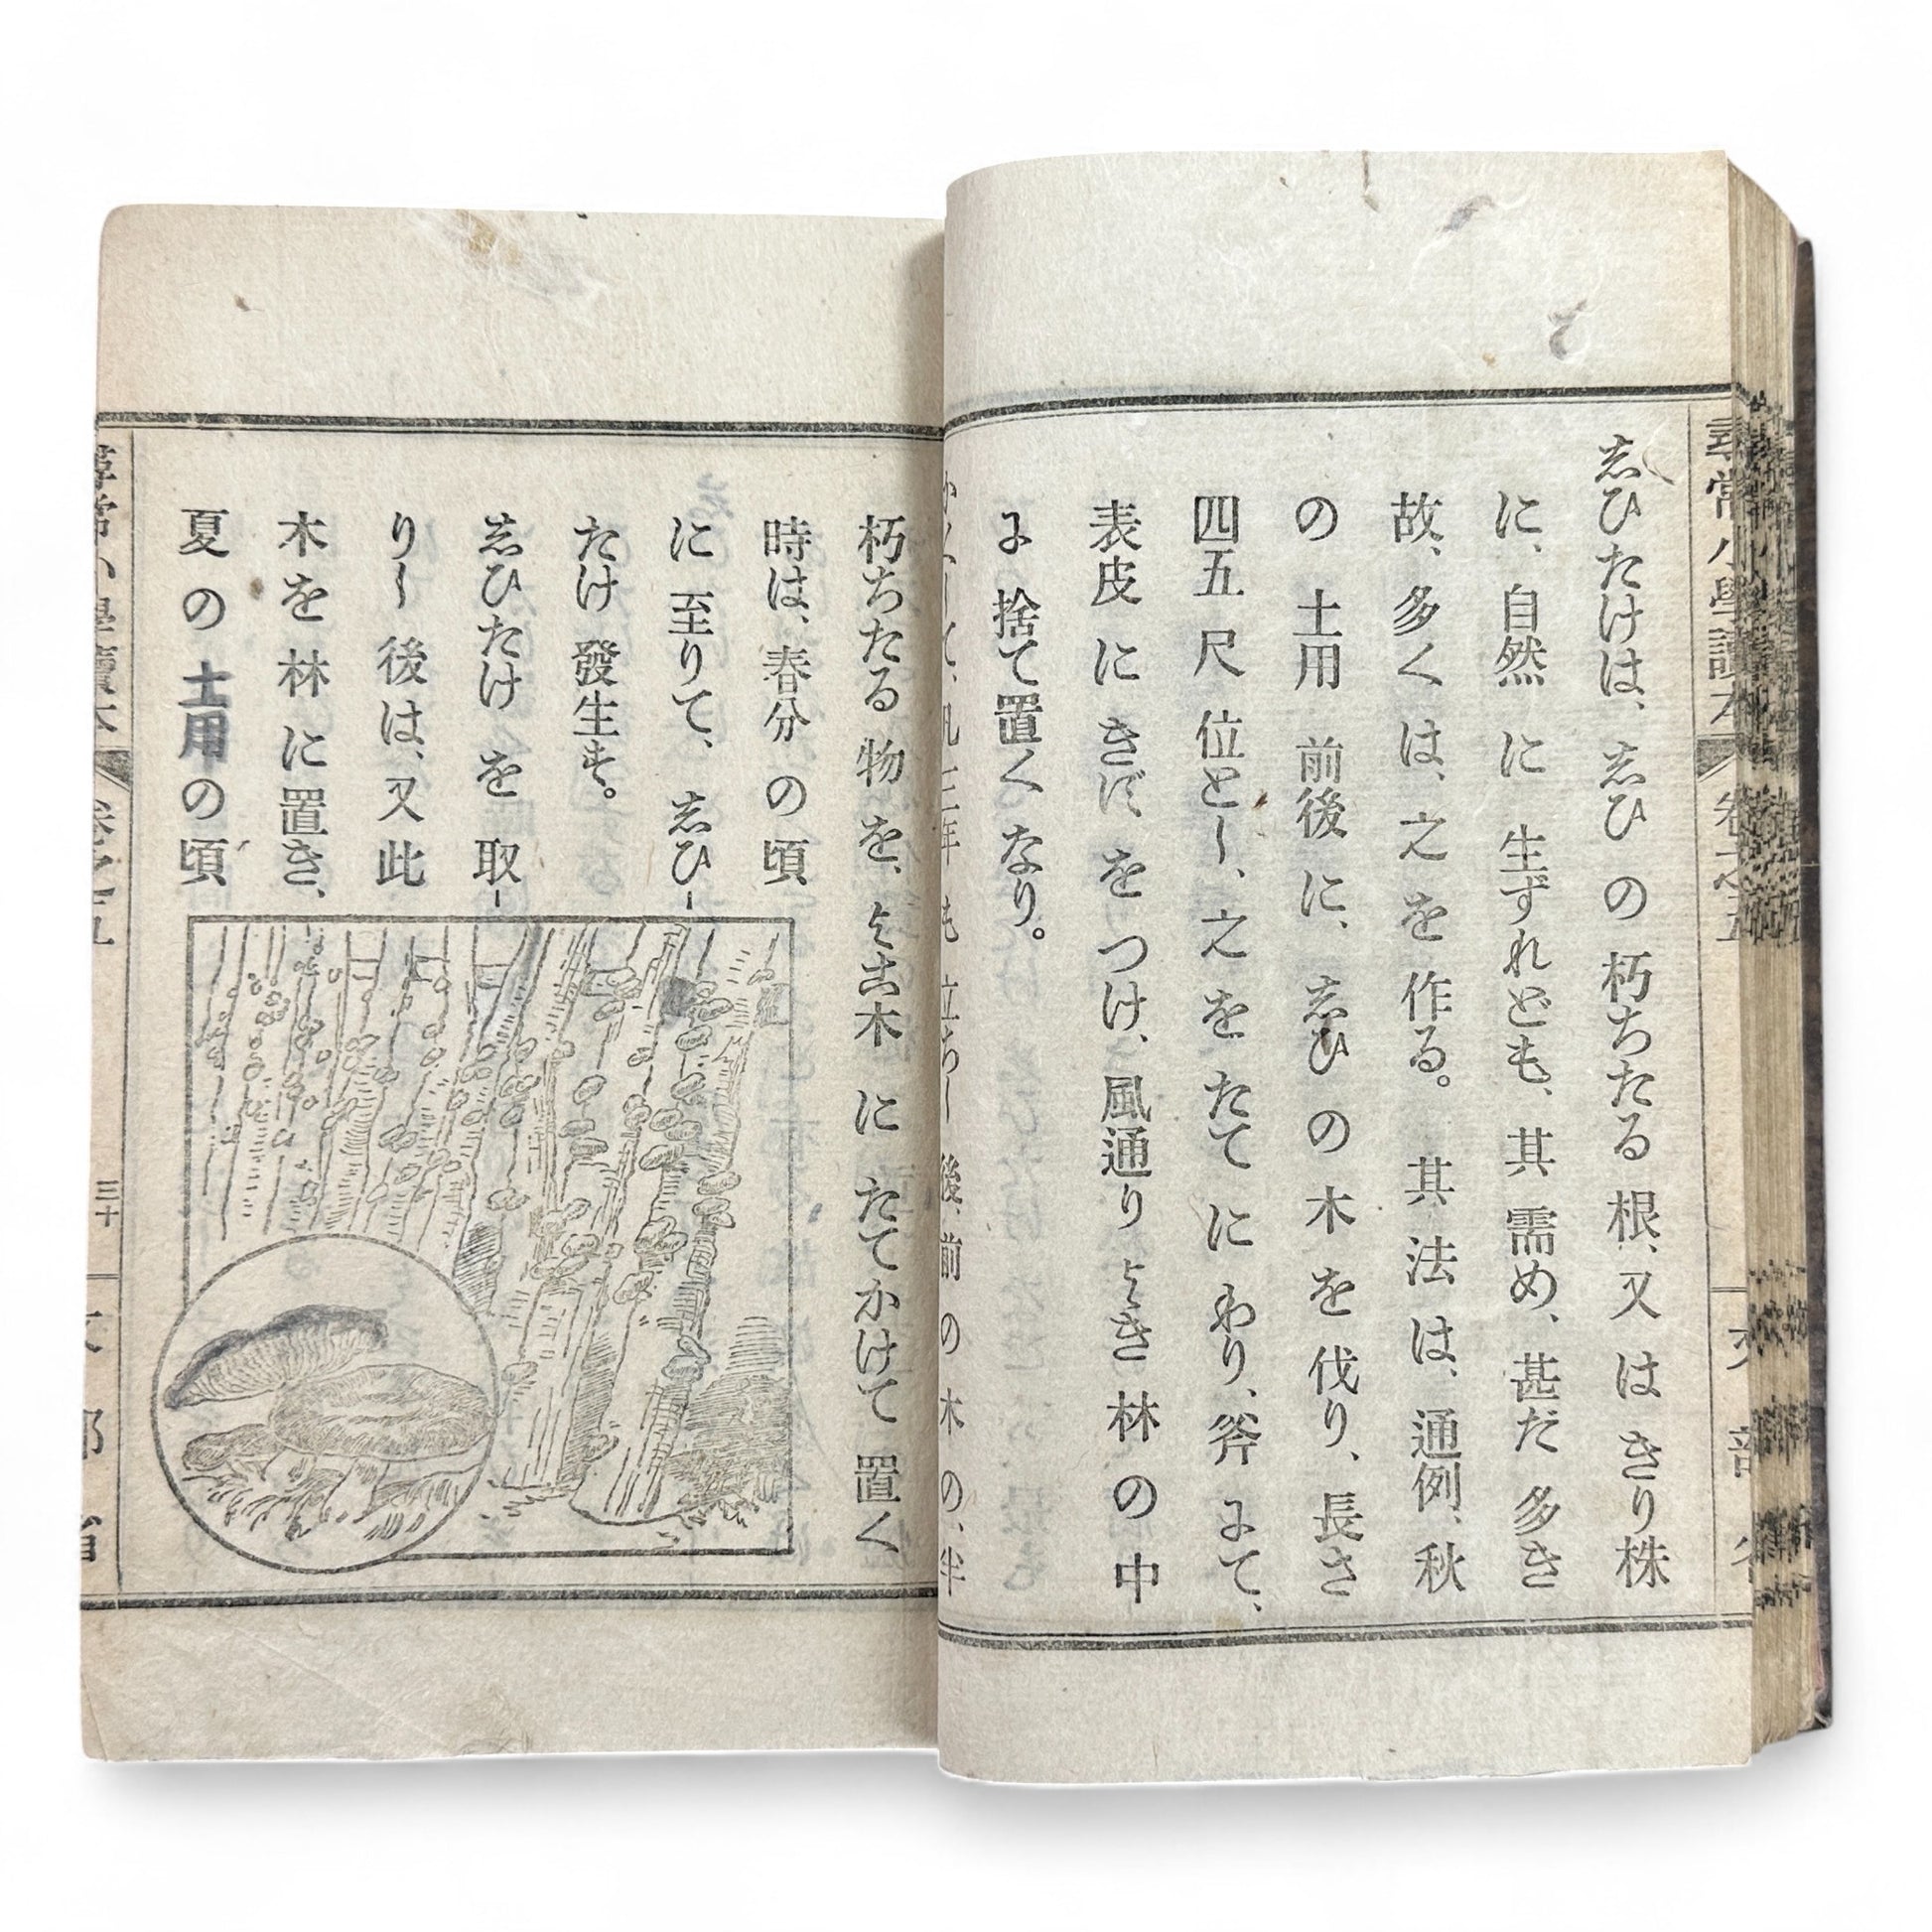 尋常小學讀本 卷之五 文部省
志ひたけは、志ひ の 朽ちたる 根、又 は きり株
に、自然 に 生ずれども、其 需め、甚だ 多き
故、多く は、之 を 作る。 其 法 は、通例、秋
の 土用 前後 に、志ひ の 木 を 伐り、長さ
四五 尺 位とし、之 を たて に わり、斧 にて、
表皮 に きず を つけ、風通り よき 林 の 中
に 捨て置く なり。
年 も 立ちし 後、前 の 木 の、半
朽ちたる 物 を、よ古木 に たてかけて 置く
時は、春分 の 頃
に 至りて、志ひ-
たけ 發生す。
志ひたけ を 取-
りし 後 は、又 此
木を 林 に 置き、
夏 の 土用の頃
尋常小學讀本 卷之五 三十 文部省